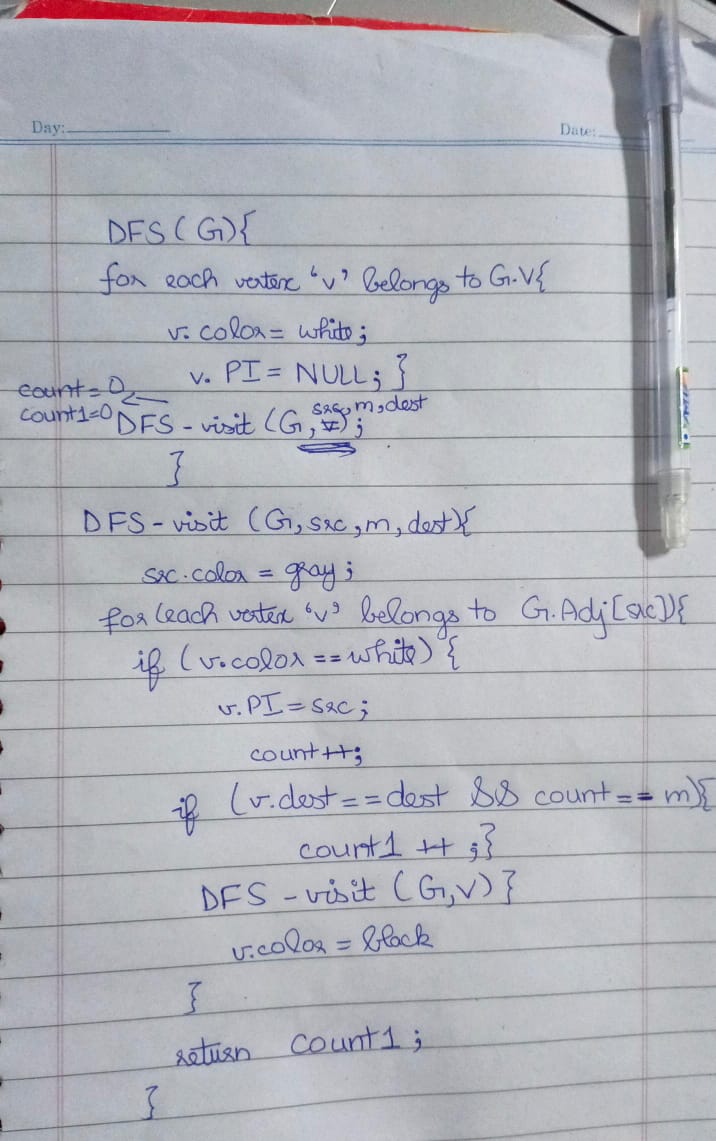 Day:
Date:
DFS (G){
for each vertex 'v' belongs to G.V{
v.color = white;
v. PI = NULL; }
count = 0
count1=0
src, m, dest
DFS - visit (G, v);
}
DFS - visit (G, src, m, dest){
src.color = gray;
for (each vertex 'v' belongs to G.Adj[src]){
if (v.color == white) {
v.PI = src;
count++;
if (v.dest == dest && count == m){
count1 ++ ;}
DFS - visit (G,V) }
v.color = black
}
return count1 ;
}